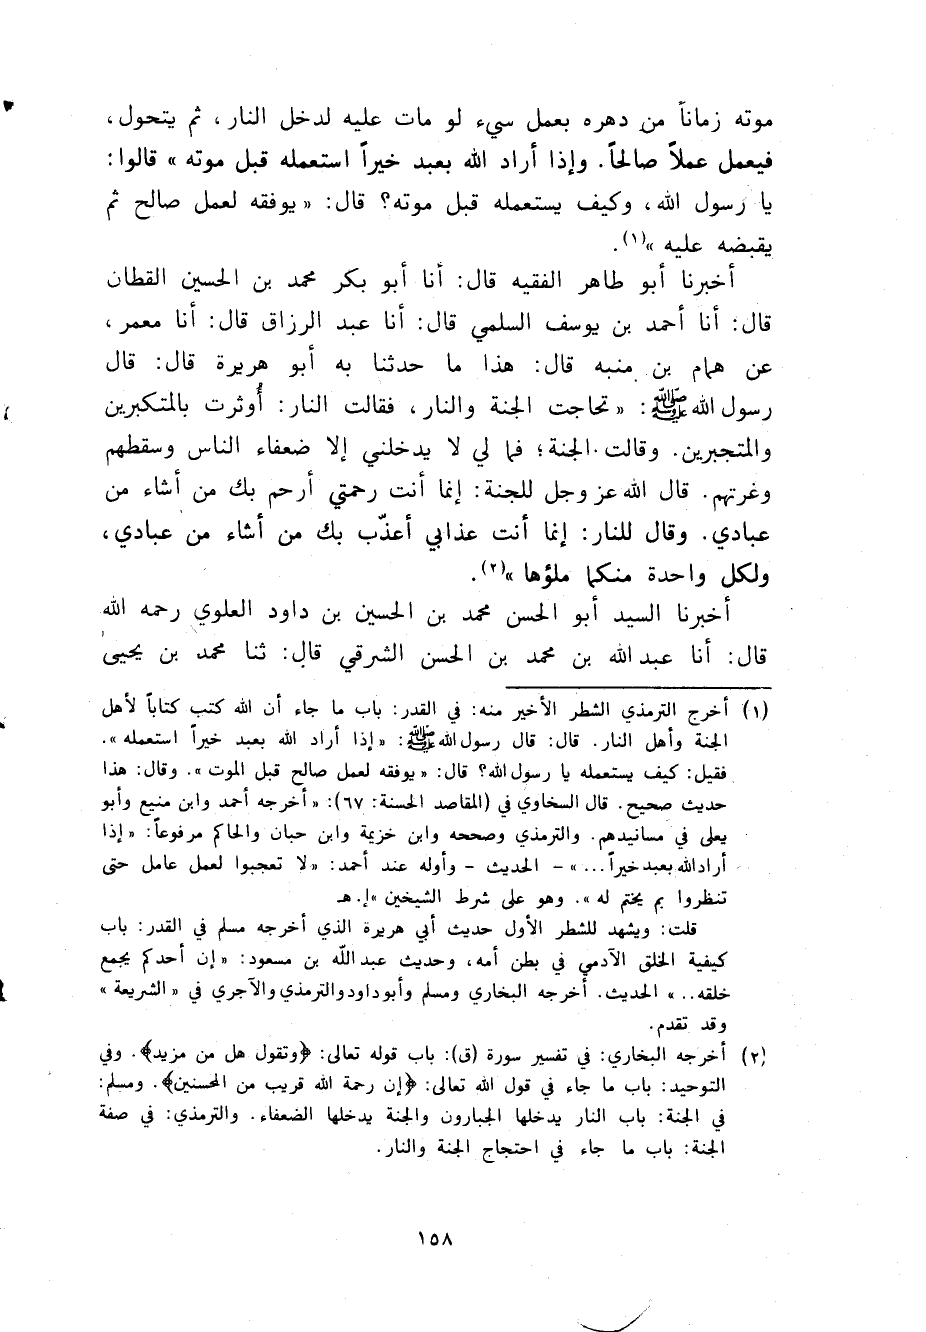 موته زماناً من دهره بعمل سيء لو مات عليه لدخل النار، ثم يتحول،
فيعمل عملاً صالحاً. وإذا أراد الله بعبد خيراً استعمله قبل موته » قالوا:
يا رسول الله، وكيف يستعمله قبل موته؟ قال: « يوفقه لعمل صالح ثم
يقبضه عليه »(١).
أخبرنا أبو طاهر الفقيه قال: أنا أبو بكر محمد بن الحسين القطان
قال: أنا أحمد بن يوسف السلمي قال: أنا عبد الرزاق قال: أنا معمر،
عن همام بن منبه قال: هذا ما حدثنا به أبو هريرة قال: قال
رسول الله ﷺ: « تحاجت الجنة والنار، فقالت النار: أُوثرت بالمتكبرين
والمتجبرين. وقالت الجنة؛ فما لي لا يدخلني إلا ضعفاء الناس وسقطهم
وغرتهم. قال الله عز وجل للجنة: إنما أنت رحمتي أرحم بك من أشاء من
عبادي. وقال للنار: إنما أنت عذابي أعذّب بك من أشاء من عبادي،
ولكل واحدة منكما ملؤها »(٢).
أخبرنا السيد أبو الحسن محمد بن الحسين بن داود العلوي رحمه الله
قال: أنا عبد الله بن محمد بن الحسن الشرقي قال: ثنا محمد بن يحيى
(١) أخرج الترمذي الشطر الأخير منه: في القدر: باب ما جاء أن الله كتب كتاباً لأهل
الجنة وأهل النار. قال: قال رسول الله ﷺ: « إذا أراد الله بعبد خيراً استعمله ».
فقيل: كيف يستعمله يا رسول الله؟ قال: « يوفقه لعمل صالح قبل الموت ». وقال: هذا
حديث صحيح. قال السخاوي في (المقاصد الحسنة: ٦٧): « أخرجه أحمد وابن منيع وأبو
يعلى في مسانيدهم. والترمذي وصححه وابن خزيمة وابن حبان والحاكم مرفوعاً: « إذا
أراد الله بعبد خيراً ... » - الحديث - وأوله عند أحمد: « لا تعجبوا لعمل عامل حتى
تنظروا بم يختم له ». وهو على شرط الشيخين » إ. هـ
قلت: ويشهد للشطر الأول حديث أبي هريرة الذي أخرجه مسلم في القدر: باب
كيفية الخلق الآدمي في بطن أمه، وحديث عبد اللّه بن مسعود: « إن أحدكم يجمع
خلقه.. » الحديث. أخرجه البخاري ومسلم وأبو داود والترمذي والآجري في « الشريعة »
وقد تقدم.
(٢) أخرجه البخاري: في تفسير سورة (ق): باب قوله تعالى: ﴿وتقول هل من مزيد﴾. وفي
التوحيد: باب ما جاء في قول الله تعالى: ﴿إن رحمة الله قريب من المحسنين﴾. ومسلم:
في الجنة: باب النار يدخلها الجبارون والجنة يدخلها الضعفاء. والترمذي: في صفة
الجنة: باب ما جاء في احتجاج الجنة والنار.
١٥٨